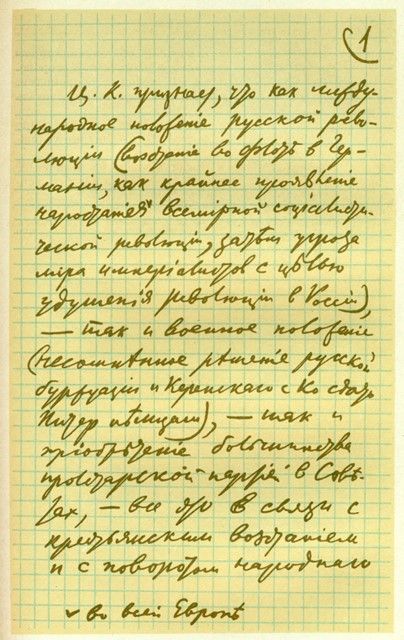 1
Ц. К. признает, что как между-
народное положение русской рево-
люціи (возстаніе во флотѣ в Гер-
маніи, как крайнее проявленіе
наростанія ✓ всемірной соціалисти-
ческой революціи, затѣм угроза
мира имперіалистов с цѣлью
удушенія революціи в Россіи),
— так и военное положеніе
(несомнѣнное рѣшеніе русской
буржуазіи и Керенскаго с Ко сдать
Питер нѣмцам), — так и
пріобрѣтеніе большинства
пролетарской партіей в Совѣ-
тах, — все это в связи с
крестьянским возстаніем
и с поворотом народнаго
✓ во всей Европѣ